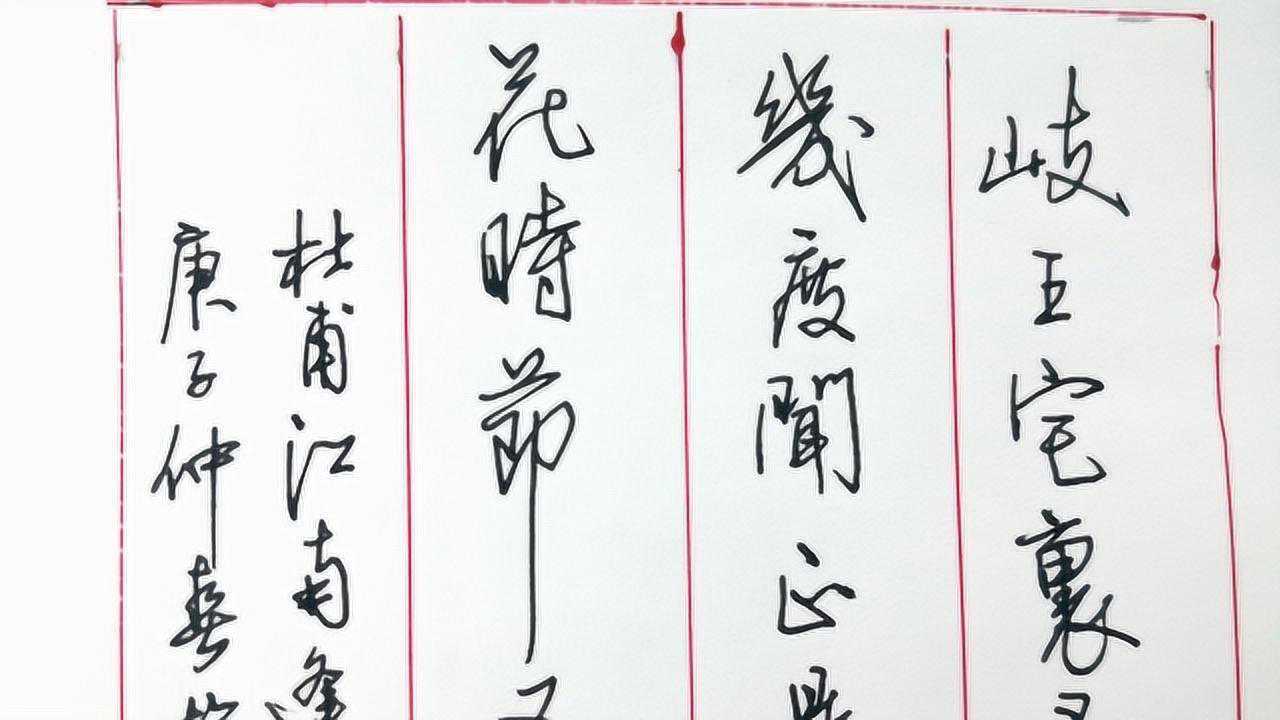 岐王宅裏
幾度聞正是
花時節又
杜甫江南逢
庚子仲春